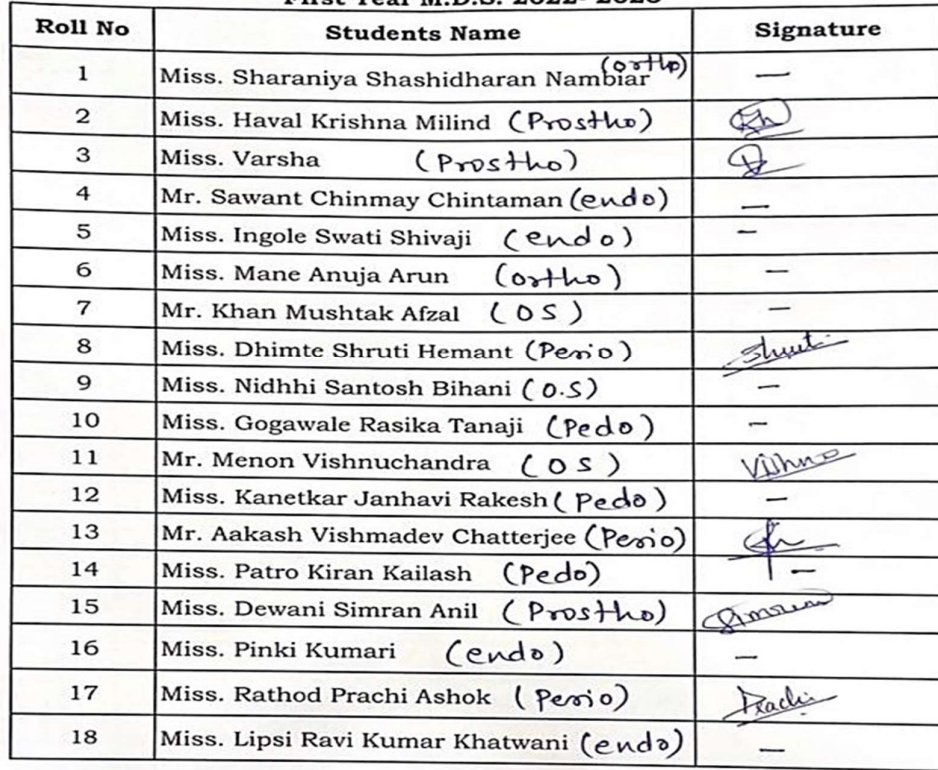 First Year M.D.S. 2022- 2023
Roll No Students Name Signature
1 Miss. Sharaniya Shashidharan Nambiar (ortho) —
2 Miss. Haval Krishna Milind (Prostho)
3 Miss. Varsha (Prostho)
4 Mr. Sawant Chinmay Chintaman (endo) —
5 Miss. Ingole Swati Shivaji (endo) —
6 Miss. Mane Anuja Arun (ortho) —
7 Mr. Khan Mushtak Afzal (OS) —
8 Miss. Dhimte Shruti Hemant (Perio) Shruti
9 Miss. Nidhhi Santosh Bihani (O.S) —
10 Miss. Gogawale Rasika Tanaji (Pedo) —
11 Mr. Menon Vishnuchandra (OS) Vishnu
12 Miss. Kanetkar Janhavi Rakesh (Pedo) —
13 Mr. Aakash Vishmadev Chatterjee (Perio)
14 Miss. Patro Kiran Kailash (Pedo) —
15 Miss. Dewani Simran Anil (Prostho) Simran
16 Miss. Pinki Kumari (endo) —
17 Miss. Rathod Prachi Ashok (Perio) Prachi
18 Miss. Lipsi Ravi Kumar Khatwani (endo) —